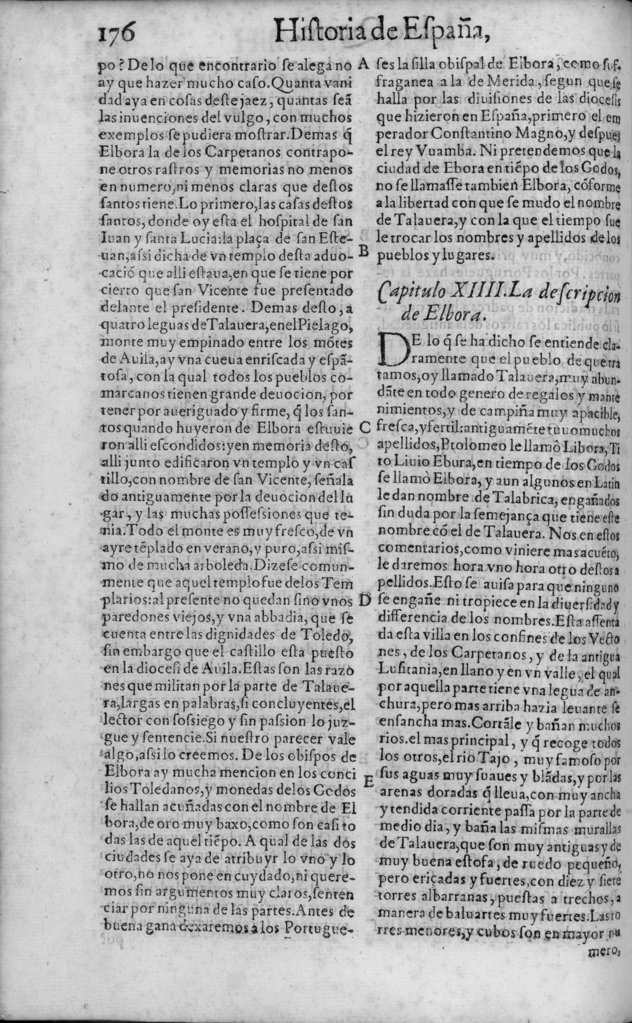 176
Historia de España,
po? De lo que encontrario se alega no
ay que hazer mucho caso. Quanta vani
dad aya en cosas deste jaez, quantas seã
las inuenciones del vulgo, con muchos
exemplos se pudiera mostrar. Demas q̃
Elbora la de los Carpetanos contrapo-
ne otros rastros y memorias no menos
en numero, ni menos claras que destos
santos tiene. Lo primero, las casas destos
santos, donde oy està el hospital de san
Iuan y santa Lucia: la plaça de san Este-
uan, assi dicha de vn templo desta aduo-
cació que alli estaua, en que se tiene por
cierto que san Vicente fue presentado
delante el presidente. Demas desto, a
quatro leguas de Talauera, en el Pielago,
monte muy empinado entre los mótes
de Auila, ay vna cueua enriscada y espã-
tosa, con la qual todos los pueblos co-
marcanos tienen grande deuocion, por
tener por aueriguado y firme, q̃ los san-
tos quando huyeron de Elbora estuuie
ron alli escondidos: y en memoria desto,
alli junto edificaron vn templo y vn cas
tillo, con nombre de san Vicente, señala
do antiguamente por la deuocion del lu
gar, y las muchas possessiones que te-
nia. Todo el monte es muy fresco, de vn
ayre tẽplado en verano, y puro, assi mis-
mo de mucha arboleda. Dizese comun-
mente que aquel templo fue de los Tem
plarios: al presente no quedan sino vnos
paredones viejos, y vna abbadia, que se
cuenta entre las dignidades de Toledo,
sin embargo que el castillo esta puesto
en la diocesi de Auila. Estas son las razo
nes que militan por la parte de Talaue-
ra, largas en palabras, si concluyentes, el
lector con sossiego y sin passion lo juz-
gue y sentencie. Si nuestro parecer vale
algo, assi lo creemos. De los obispos de
Elbora ay mucha mencion en los conci
lios Toledanos, y monedas de los Godos
se hallan acuñadas con el nombre de El
bora, de oro muy baxo, como son casi to
das las de aquel tiẽpo. A qual de las dos
ciudades se aya de atribuyr lo vno y lo
otro, no nos pone en cuydado, ni quere-
mos sin argumentos muy claros, senten
ciar por ninguna de las partes. Antes de
buena gana dexaremos a los Portugue-
A
B
C
D
E
ses la silla obispal de Elbora, como suf-
fraganea a la de Merida, segun que se
halla por las diuisiones de las diocesis
que hizieron en España, primero el em
perador Constantino Magno, y despues
el rey Vuamba. Ni pretendemos que la
ciudad de Ebora en tiẽpo de los Godos,
no se llamasse tambien Elbora, cóforme
a la libertad con que se mudo el nombre
de Talauera, y con la que el tiempo fue
le trocar los nombres y apellidos de los
pueblos y lugares.
Capitulo XIIII. La descripcion
de Elbora.
DE lo q̃ se ha dicho se entiende cla-
ramente que el pueblo de que tra
tamos, oy llamado Talauera, muy abun-
dãte en todo genero de regalos y mante
nimientos, y de campiña muy apacible,
fresca, y fertil: antiguamẽte tuuo muchos
apellidos, Ptolomeo le llamò Libora, Ti
to Liuio Ebura, en tiempo de los Godos
se llamò Elbora, y aun algunos en Latin
le dan nombre de Talabrica, engañados
sin duda por la semejança que tiene este
nombre có el de Talauera. Nos en estos
comentarios, como viniere mas acuẽto,
le daremos hora vno hora otro destos a
pellidos. Esto se auisa para que ninguno
se engañe ni tropiece en la diuersidad y
differencia de los nombres. Esta assenta
da esta villa en los confines de los Vecto
nes, de los Carpetanos, y de la antigua
Lusitania, en llano y en vn valle, el qual
por aquella parte tiene vna legua de an-
chura, pero mas arriba hazia leuante se
ensancha mas. Cortãle y bañan muchos
rios. el mas principal, y q̃ recoge todos
los otros, el rio Tajo, muy famoso por
sus aguas muy suaues y blãdas, y por las
arenas doradas q̃ lleua, con muy ancha
y tendida corriente passa por la parte de
medio dia, y baña las mismas murallas
de Talauera, que son muy antiguas y de
muy buena estofa, de ruedo pequeño,
pero eriçadas y fuertes, con diez y siete
torres albarranas, puestas a trechos, a
manera de baluartes muy fuertes. Las to
rres menores, y cubos son en mayor nu
mero,